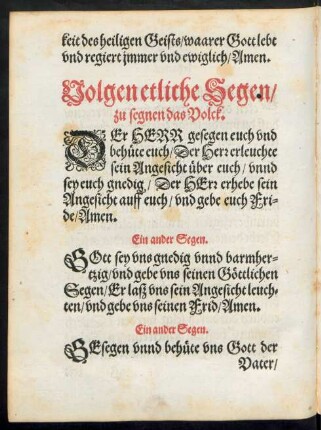 keit des heiligen Geists/ waarer Gott lebt
vnd regiert jmmer vnd ewiglich/ Amen.
Volgen etliche Segen/
zu segnen das Volck.
DEr HERR gesegen euch vnd
behüte euch/ Der Herr erleuchte
sein Angesicht über euch/ vnnd
sey euch gnedig/ Der HErr erhebe sein
Angesicht auff euch/ vnd gebe euch Fri-
de/ Amen.
Ein ander Segen.
GOtt sey vns gnedig vnnd barmher-
tzig/ vnd gebe vns seinen Göttlichen
Segen/ Er laß vns sein Angesicht leuch-
ten/ vnd gebe vns seinen Frid/ Amen.
Ein ander Segen.
GEsegen vnnd behüte vns Gott der
Vater/